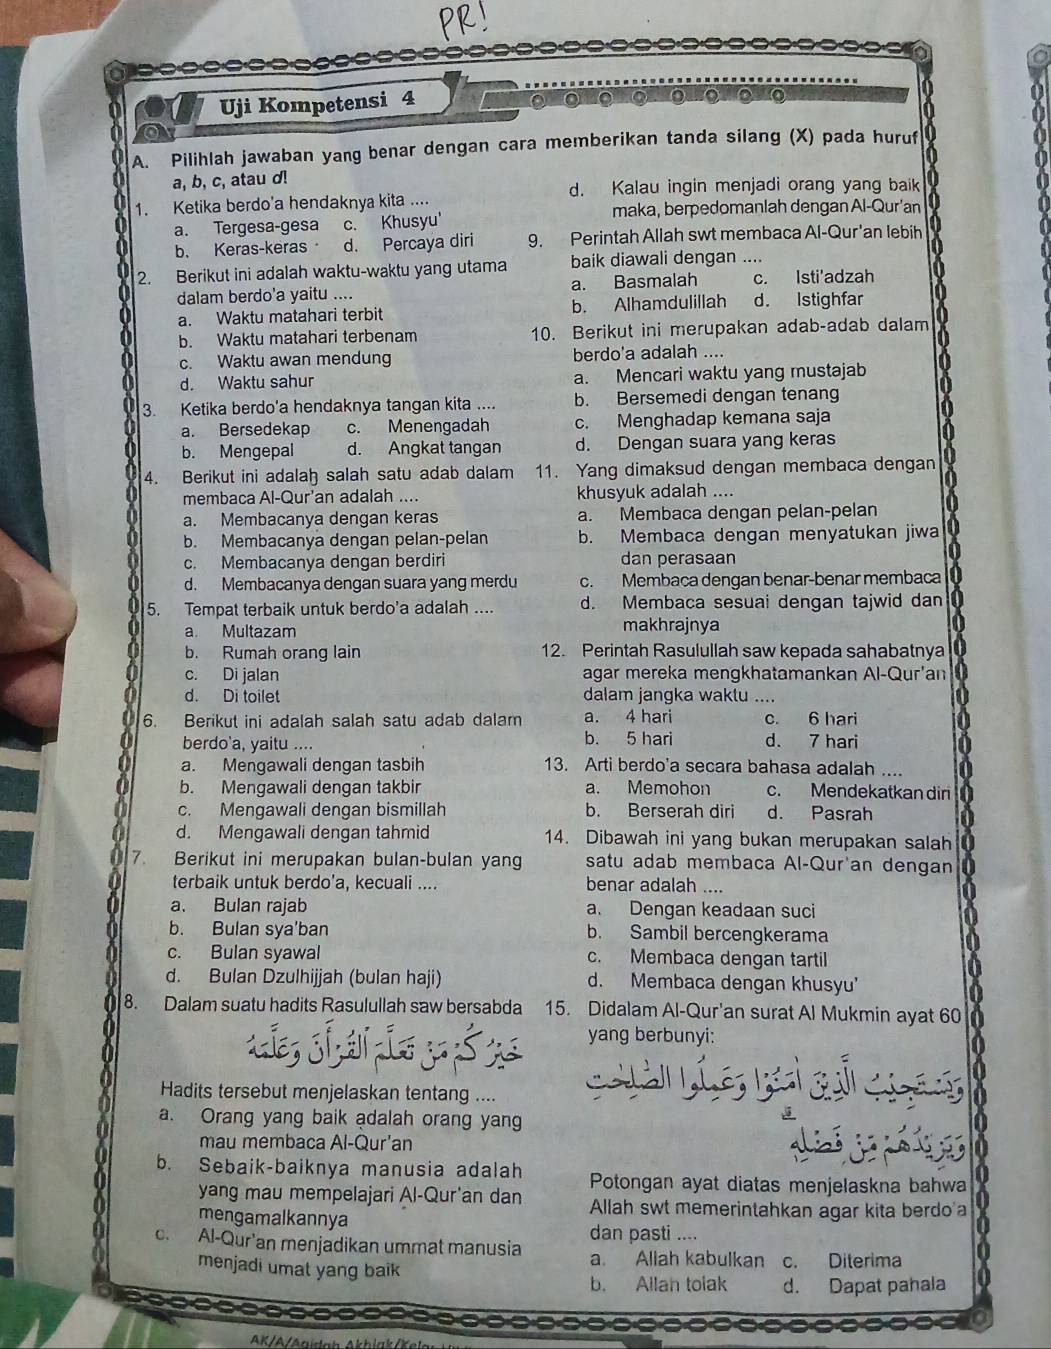 PR!
Uji Kompetensi 4
A. Pilihlah jawaban yang benar dengan cara memberikan tanda silang (X) pada huruf
a, b, c, atau d!
1. Ketika berdo'a hendaknya kita ....
a. Tergesa-gesa c. Khusyu'
b. Keras-keras d. Percaya diri
2. Berikut ini adalah waktu-waktu yang utama
dalam berdo'a yaitu ....
a. Waktu matahari terbit
b. Waktu matahari terbenam
c. Waktu awan mendung
d. Waktu sahur
3. Ketika berdo'a hendaknya tangan kita ....
a. Bersedekap c. Menengadah
b. Mengepal d. Angkat tangan
4. Berikut ini adalah salah satu adab dalam
membaca Al-Qur'an adalah ....
a. Membacanya dengan keras
b. Membacanya dengan pelan-pelan
c. Membacanya dengan berdiri
d. Membacanya dengan suara yang merdu
5. Tempat terbaik untuk berdo'a adalah ....
a. Multazam
b. Rumah orang lain
c. Di jalan
d. Di toilet
6. Berikut ini adalah salah satu adab dalam
berdo'a, yaitu ....
a. Mengawali dengan tasbih
b. Mengawali dengan takbir
c. Mengawali dengan bismillah
d. Mengawali dengan tahmid
7. Berikut ini merupakan bulan-bulan yang
terbaik untuk berdo'a, kecuali ....
a. Bulan rajab
b. Bulan sya'ban
c. Bulan syawal
d. Bulan Dzulhijjah (bulan haji)
8. Dalam suatu hadits Rasulullah saw bersabda
خَيْرُ كُمْ مَنْ تَعَلَّمَ الْقُرْآنَ وَعَلَّمَهُ
Hadits tersebut menjelaskan tentang ....
a. Orang yang baik adalah orang yang
mau membaca Al-Qur'an
b. Sebaik-baiknya manusia adalah
yang mau mempelajari Al-Qur'an dan
mengamalkannya
c. Al-Qur'an menjadikan ummat manusia
menjadi umat yang baik
d. Kalau ingin menjadi orang yang baik
maka, berpedomanlah dengan Al-Qur'an
9. Perintah Allah swt membaca Al-Qur'an lebih
baik diawali dengan ....
a. Basmalah c. Isti'adzah
b. Alhamdulillah d. Istighfar
10. Berikut ini merupakan adab-adab dalam
berdo'a adalah ....
a. Mencari waktu yang mustajab
b. Bersemedi dengan tenang
c. Menghadap kemana saja
d. Dengan suara yang keras
11. Yang dimaksud dengan membaca dengan
khusyuk adalah ....
a. Membaca dengan pelan-pelan
b. Membaca dengan menyatukan jiwa
dan perasaan
c. Membaca dengan benar-benar membaca
d. Membaca sesuai dengan tajwid dan
makhrajnya
12. Perintah Rasulullah saw kepada sahabatnya
agar mereka mengkhatamankan Al-Qur'an
dalam jangka waktu ....
a. 4 hari c. 6 hari
b. 5 hari d. 7 hari
13. Arti berdo'a secara bahasa adalah ....
a. Memohon c. Mendekatkan diri
b. Berserah diri d. Pasrah
14. Dibawah ini yang bukan merupakan salah
satu adab membaca Al-Qur'an dengan
benar adalah ....
a. Dengan keadaan suci
b. Sambil bercengkerama
c. Membaca dengan tartil
d. Membaca dengan khusyu'
15. Didalam Al-Qur'an surat Al Mukmin ayat 60
yang berbunyi:
وَيَسْتَجِيْبُ الَّذِيْنَ اٰمَنُوْا وَعَمِلُوا الصّٰلِحٰتِ
وَيَزِيْدُهُمْ مِّنْ فَضْلِهٖ
Potongan ayat diatas menjelaskna bahwa
Allah swt memerintahkan agar kita berdo'a
dan pasti ....
a. Allah kabulkan c. Diterima
b. Allah tolak d. Dapat pahala